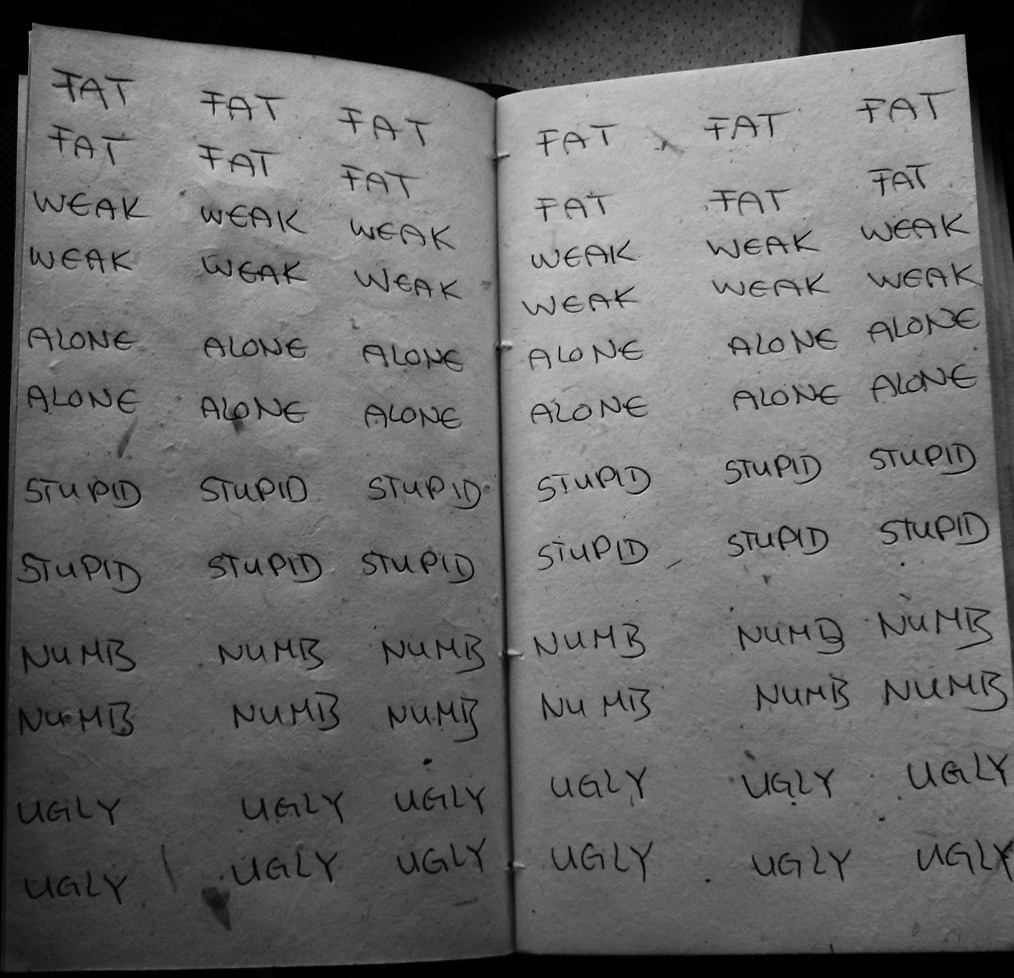 FAT FAT FAT
FAT FAT FAT
WEAK WEAK WEAK
WEAK WEAK WEAK
ALONE ALONE ALONE
ALONE ALONE ALONE
STUPID STUPID STUPID
STUPID STUPID STUPID
NUMB NUMB NUMB
NUMB NUMB NUMB
UGLY UGLY UGLY
UGLY UGLY UGLY
FAT FAT FAT
FAT FAT FAT
WEAK WEAK WEAK
WEAK WEAK WEAK
ALONE ALONE ALONE
ALONE ALONE ALONE
STUPID STUPID STUPID
STUPID STUPID STUPID
NUMB NUMB NUMB
NUMB NUMB NUMB
UGLY UGLY UGLY
UGLY UGLY UGLY